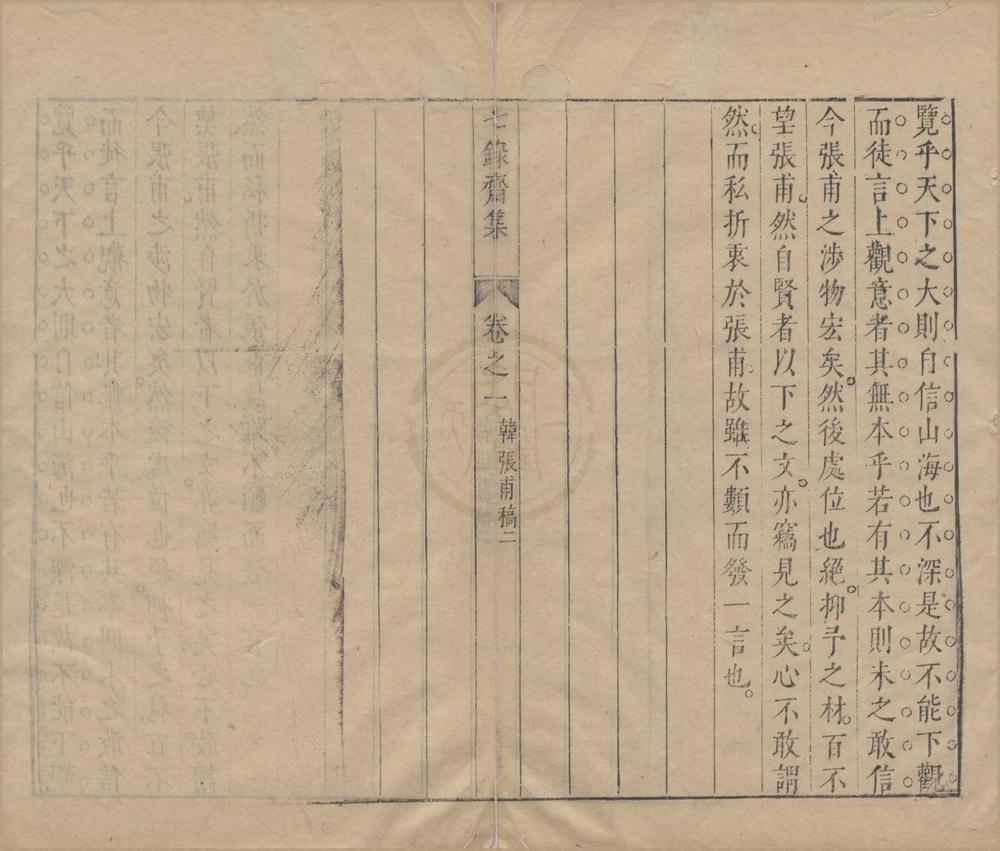 覽乎天下之大則自信山海也不深是故不能下觀
而徒言上觀意者其無本乎若有其本則未之敢信
今張甫之涉物宏矣然後處位也絕抑予之材百不
望張甫然自賢者以下之文亦竊見之矣心不敢謂
然而私折衷於張甫故雖不類而發一言也
七錄齋集 卷之一 韓張甫稿二